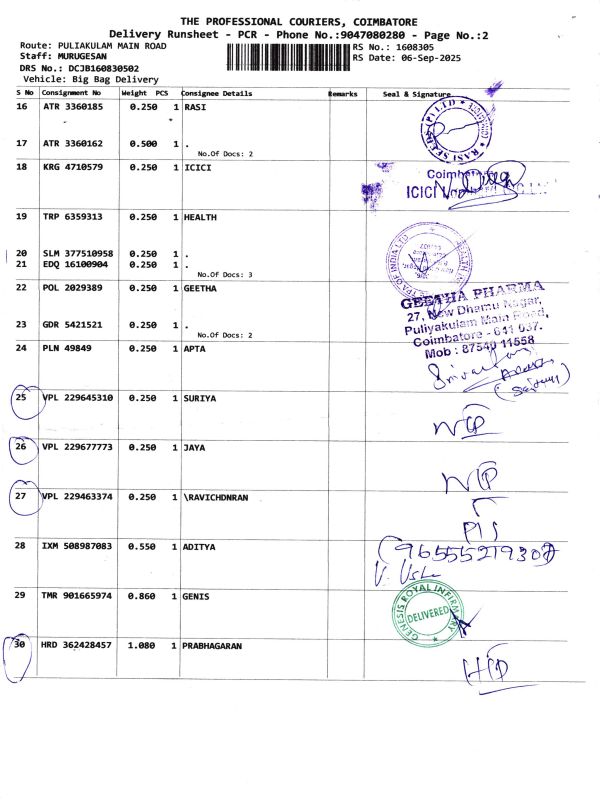 THE PROFESSIONAL COURIERS, COIMBATORE
Delivery Runsheet - PCR - Phone No.:9047080280 - Page No.:2
Route: PULIAKULAM MAIN ROAD
RS No.: 1608305
Staff: MURUGESAN
RS Date: 06-Sep-2025
DRS No.: DCJB160830502
Vehicle: Big Bag Delivery
S No Consignment No Weight PCS Consignee Details Remarks Seal & Signature
16 ATR 3360185 0.250 1 RASI
RASI SEEDS (P) LTD
17 ATR 3360162 0.500 1 .
No.Of Docs: 2
18 KRG 4710579 0.250 1 ICICI
ICICI
19 TRP 6359313 0.250 1 HEALTH
20 SLM 377510958 0.250 1 .
21 EDQ 16100904 0.250 1 .
No.Of Docs: 3
TPA OF INDIA LTD
22 POL 2029389 0.250 1 GEETHA
GEETHA PHARMA
27, New Dhamu Nagar,
Puliyakulam Main Road,
Coimbatore - 641 037.
Mob : 87540 11558
23 GDR 5421521 0.250 1 .
No.Of Docs: 2
24 PLN 49849 0.250 1 APTA
25 VPL 229645310 0.250 1 SURIYA
26 VPL 229677773 0.250 1 JAYA
27 VPL 229463374 0.250 1 \RAVICHDNRAN
28 IXM 508987083 0.550 1 ADITYA
V. Usha
29 TMR 901665974 0.860 1 GENIS
GENESIS ROYAL INFIRMARY
DELIVERED
30 HRD 362428457 1.080 1 PRABHAGARAN